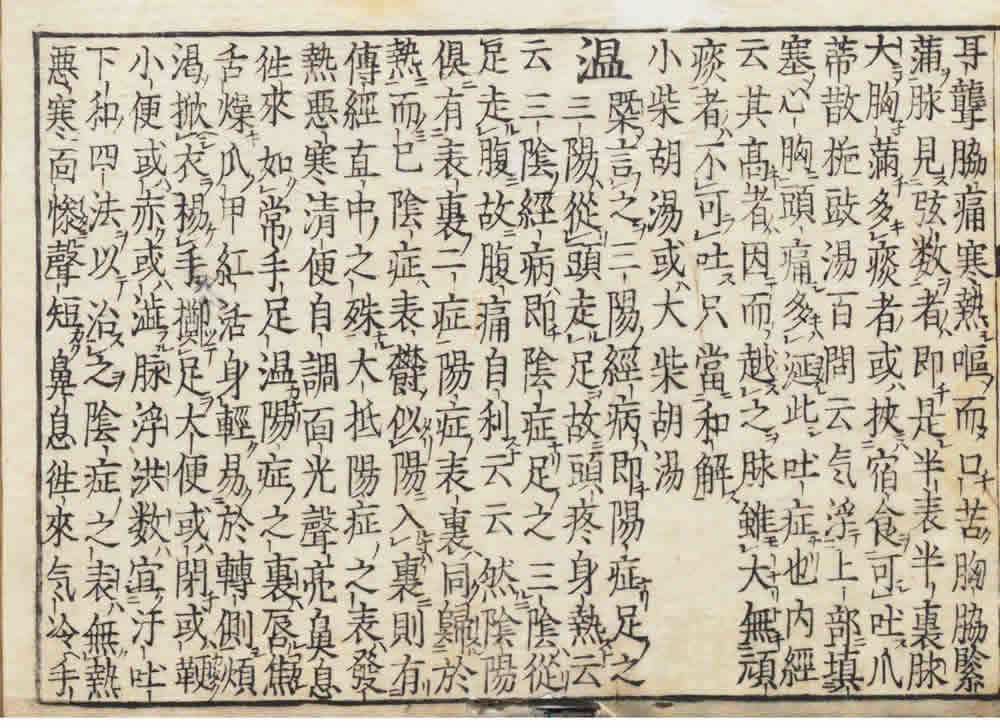 耳聾脇痛寒熱嘔而口苦胸脇緊
蒲脉見弦数者即是半表半裏脉
大胸滿多痰者或挾宿食可吐爪
蒂散梔豉湯百問云気浮上部填
塞心胸頭痛多涎此吐症也内經
云其高者因而越之脉雖大無頑
痰者不可吐只當和解
小柴胡湯或大柴胡湯
温
槩言之三陽經病即陽症足之
三陽從頭走足故頭疼身熱云
云三陰經病即陰症足之三陰從
足走腹故腹痛自利云云然陰陽
俱有表裏二症陽症表裏同歸於
熱而已陰症表欝似陽入裏則有
傳經直中之殊大抵陽症之表發
熱惡寒清便自調面光聲亮鼻息
徃來如常手足温陽症之裏唇焦
舌燥爪甲紅活身輕易於轉側煩
渇掀衣揚手擲足大便或閉或鞕
小便或赤或澁脉浮洪数宜汗吐
下和四法以治之陰症之表無熱
悪寒面惨聲短鼻息徃來気冷手